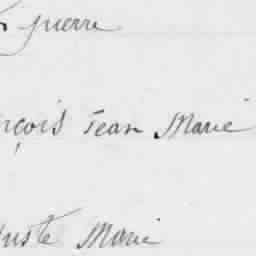 guerre
nçois Jean Marie
uste Marie